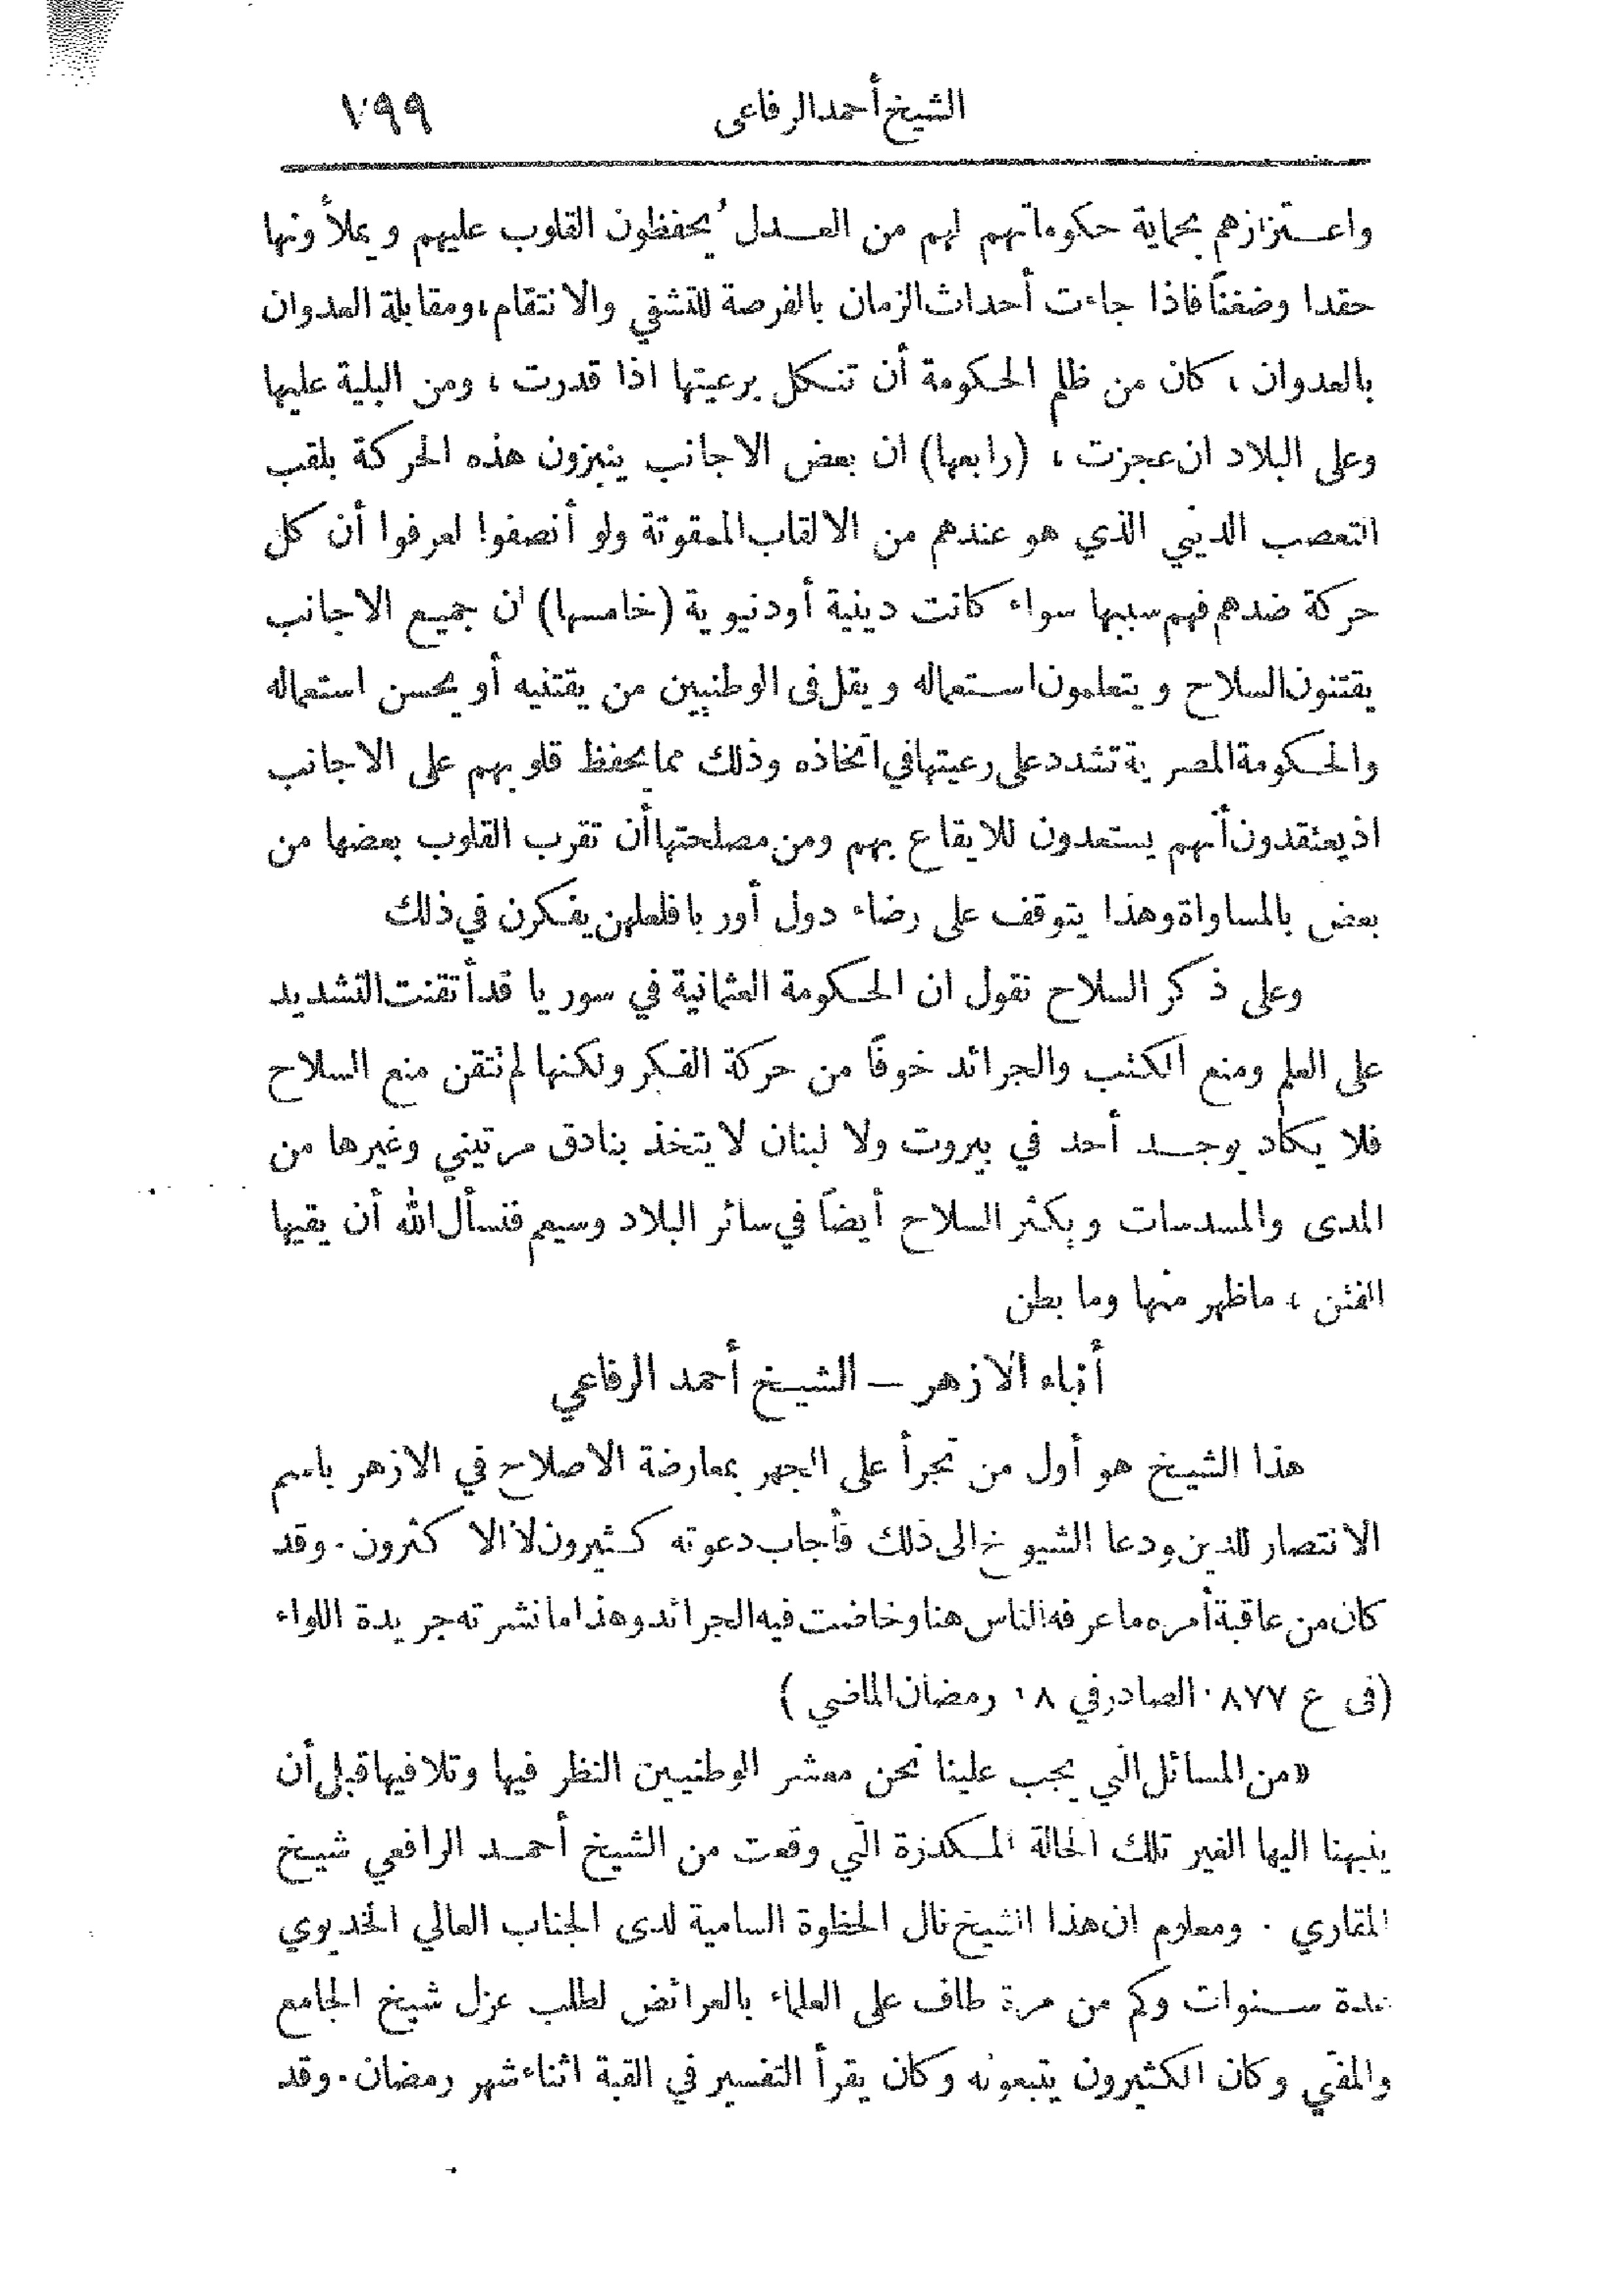 الشيخ أحمد الرفاعى ٧٩٩
واعــتزازهم بحماية حكوماتهم لهم من العــدل يُحفظون القلوب عليهم ويملأونها
حقدا وضغناً فاذا جاءت أحداث الزمان بالفرصة للتشفي والانتقام، ومقابلة العدوان
بالعدوان ، كان من ظلم الحكومة أن تنكل برعيتها اذا قدرت ، ومن البلية عليها
وعلى البلاد ان عجزت ، (رابعها) ان بعض الاجانب ينبزون هذه الحركة بلقب
التعصب الديني الذي هو عندهم من الالقاب الممقوتة ولو أنصفوا لعرفوا أن كل
حركة ضدهم فهم سببها سواء كانت دينية أودنيوية (خامسها) ان جميع الاجانب
يقتنون السلاح ويتعلمون استعماله ويقل فى الوطنيين من يقتنيه أو يحسن استعماله
والحكومة المصرية تشدد على رعيتها في اتخاذه وذلك مما يحفظ قلوبهم على الاجانب
اذ يعتقدون أنهم يستعدون للايقاع بهم ومن مصلحتها أن تقرب القلوب بعضها من
بعض بالمساواة وهذا يتوقف على رضاء دول أوربا فلعلهن يفكرن في ذلك
وعلى ذكر السلاح نقول ان الحكومة العثمانية في سوريا قد أتقنت التشديد
على العلم ومنع الكتب والجرائد خوفاً من حركة الفكر ولكنها لم تتقن منع السلاح
فلا يكاد يوجــد أحد في بيروت ولا لبنان لا يتخذ بنادق مرتيني وغيرها من
المدى والمسدسات ويكثر السلاح أيضاً في سائر البلاد وسيم فنسأل الله أن يقيها
الفتن ، ماظهر منها وما بطن
أنباء الازهر — الشيخ أحمد الرفاعي
هذا الشيخ هو أول من تجرأ على الجهر بمعارضة الاصلاح في الازهر باسم
الانتصار للدين ودعا الشيوخ الى ذلك فأجاب دعوته كثيرون لا الاكثرون. وقد
كان من عاقبة أمره ما عرفه الناس هنا وخاضت فيه الجرائد وهذا ما نشرته جريدة اللواء
(فى ع ٨٧٧ الصادر في ٨ رمضان الماضي )
«من المسائل التي يجب علينا نحن معشر الوطنيين النظر فيها وتلافيها قبل أن
ينبهنا اليها الغير تلك الحالة المكدرة التي وقعت من الشيخ أحمــد الرافعي شيخ
المقاري . ومعلوم ان هذا الشيخ نال الحظوة السامية لدى الجناب العالي الخديوي
عدة سنوات وكم من مرة طاف على العلماء بالعرائض لطلب عزل شيخ الجامع
والمفتي وكان الكثيرون يتبعونه وكان يقرأ التفسير في القبة اثناء شهر رمضان. وقد